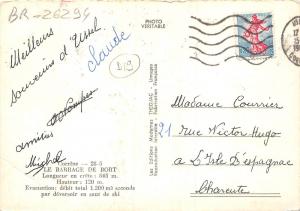 BR-26294
PHOTO
VERITABLE
Meilleurs
souvenirs d'Ussel
Claude
819
amitiés
Michel
Corrèze — 28-5
LE BARRAGE DE BORT
Longueur en crête :
Hauteur : 120 m.
Evacuation: débit total 1.200 m3 seconde
par déversoir en saut de ski
Les Editions Modernes THEOJAC - Limoges
Fabrication Française
Madame Courrier
21 Rue Victor Hugo
à L'Isle d'espagnac
Charente